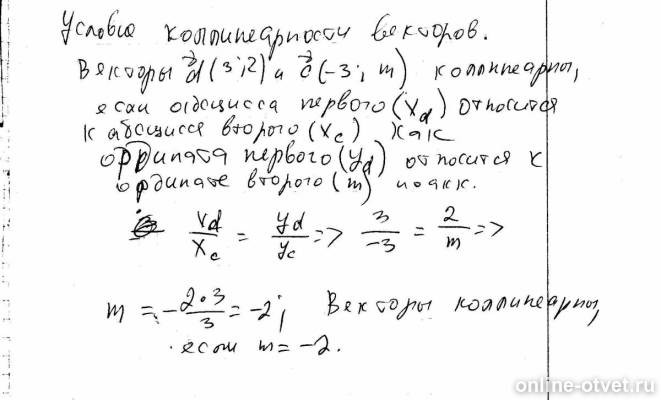 Условие коллинеарности векторов.
Векторы d(3;2) и c(-3; m) коллинеарны,
если абсцисса первого (x_d) относится
к абсциссе второго (x_c), как
ордината первого (y_d) относится к
ординате второго (m)
x_d/x_c = y_d/y_c => 3/-3 = 2/m =>
m = -2·3/3 = -2; Векторы коллинеарны,
если m = -2.
online-otvet.ru